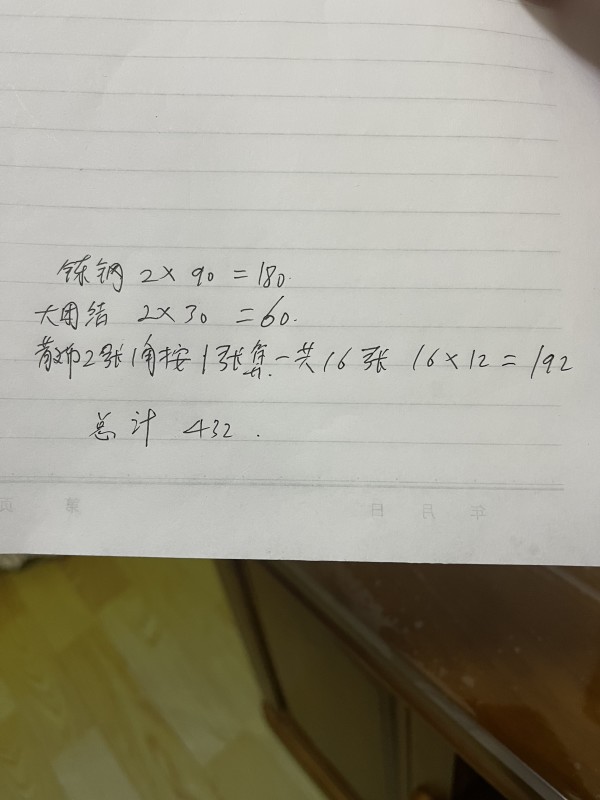 炼钢 2×90=180.
大团结 2×30 =60.
散币2张1角按1张算一共16张 16×12=192
总计 432.
第 页
年 月 日